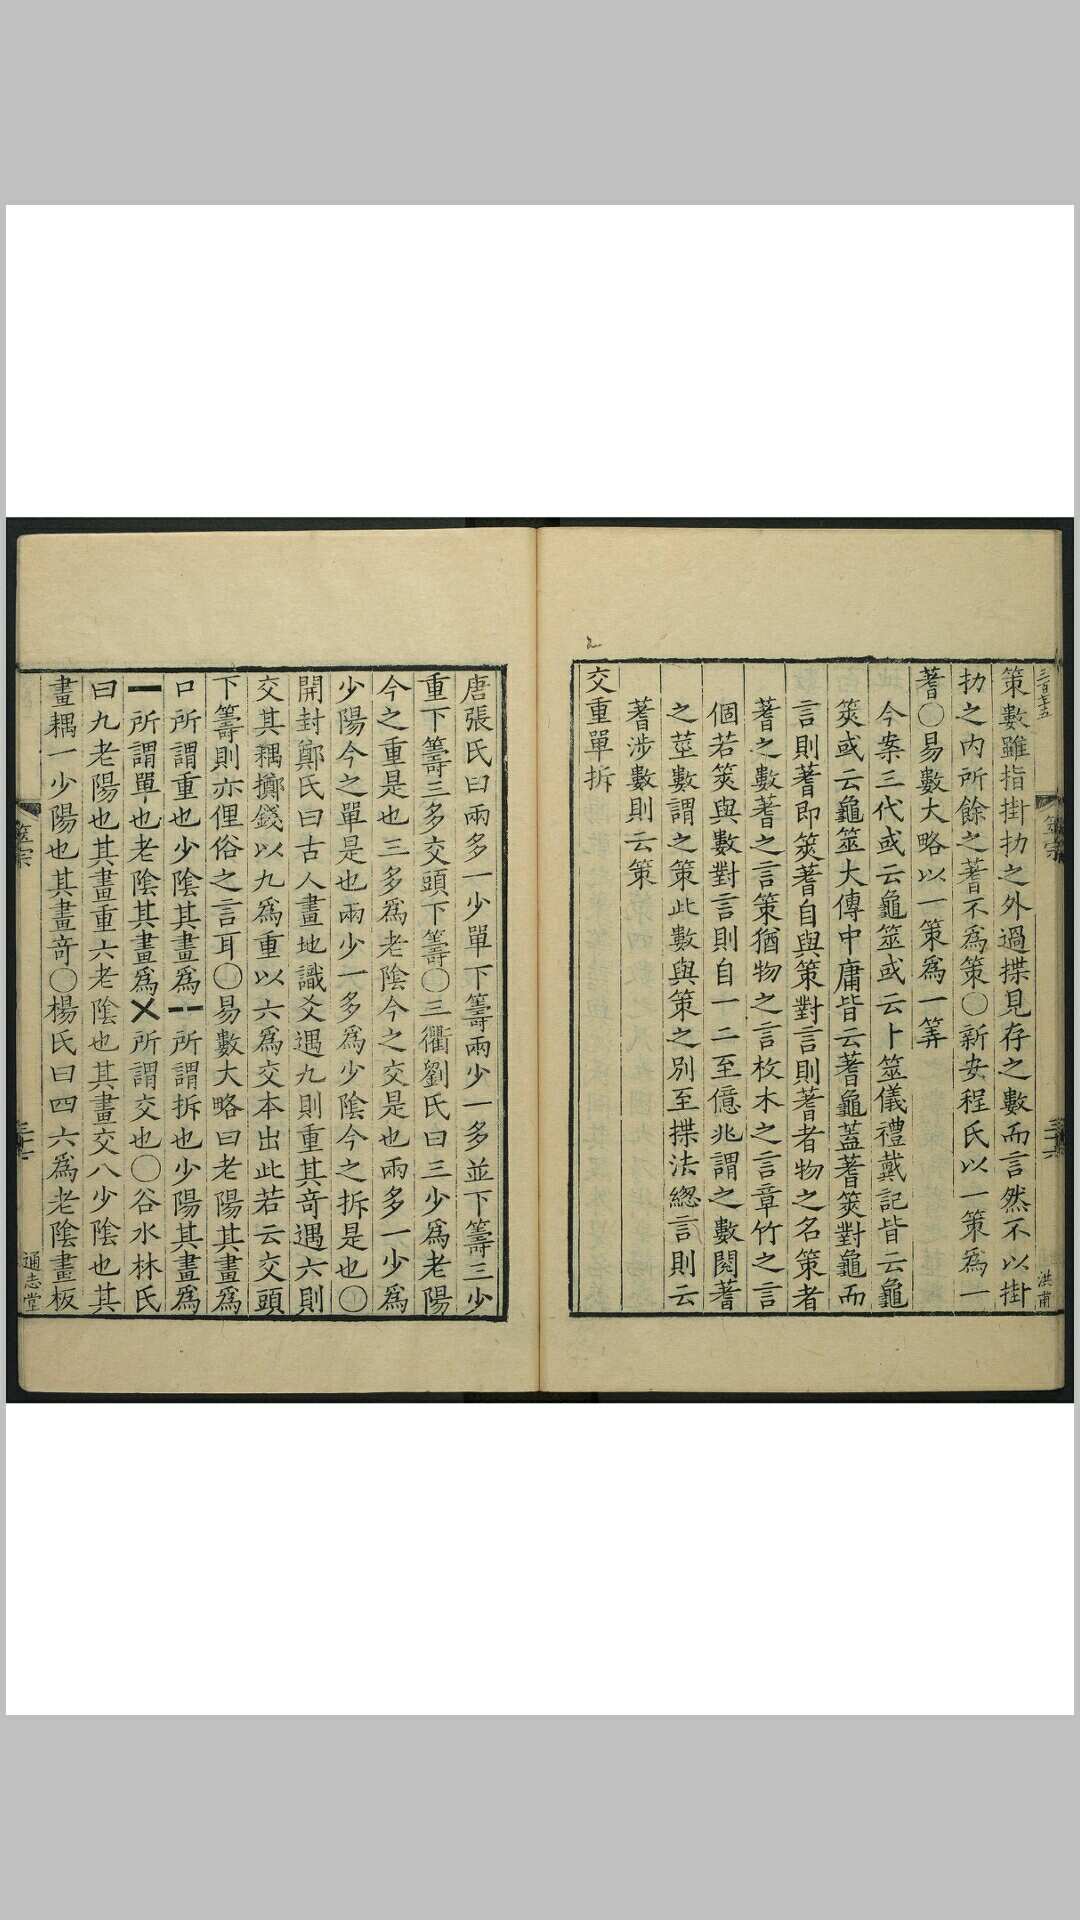 三百七十五
洪甫
筮宗
三十六
策數雖指掛扐之外過揲見存之數而言然不以掛
扐之内所餘之蓍不爲策○新安程氏以一策爲一
蓍○易數大略以一策爲一筭
今案三代或云龜筮或云卜筮儀禮戴記皆云龜
筴或云龜筮大傳中庸皆云蓍龜蓋蓍筴對龜而
言則蓍即筴蓍自與策對言則蓍者物之名策者
蓍之數蓍之言策猶物之言枚木之言章竹之言
個若筴與數對言則自一二至億兆謂之數閱蓍
之莖數謂之策此數與策之別至揲法緫言則云
蓍涉數則云策
交重單拆
唐張氏曰兩多一少單下籌兩少一多並下籌三少
重下籌三多交頭下籌○三衢劉氏曰三少爲老陽
今之重是也三多爲老陰今之交是也兩多一少爲
少陽今之單是也兩少一多爲少陰今之拆是也○
開封鄭氏曰古人畫地識爻遇九則重其奇遇六則
交其耦擲錢以九爲重以六爲交本出此若云交頭
下籌則亦俚俗之言耳○易數大略曰老陽其畫爲
口所謂重也少陰其畫爲⚋所謂拆也少陽其畫爲
⚊所謂單也老陰其畫爲乂所謂交也○谷水林氏
曰九老陽也其畫重六老陰也其畫交八少陰也其
畫耦一少陽也其畫奇○楊氏曰四六爲老陰畫板
筮宗
通志堂